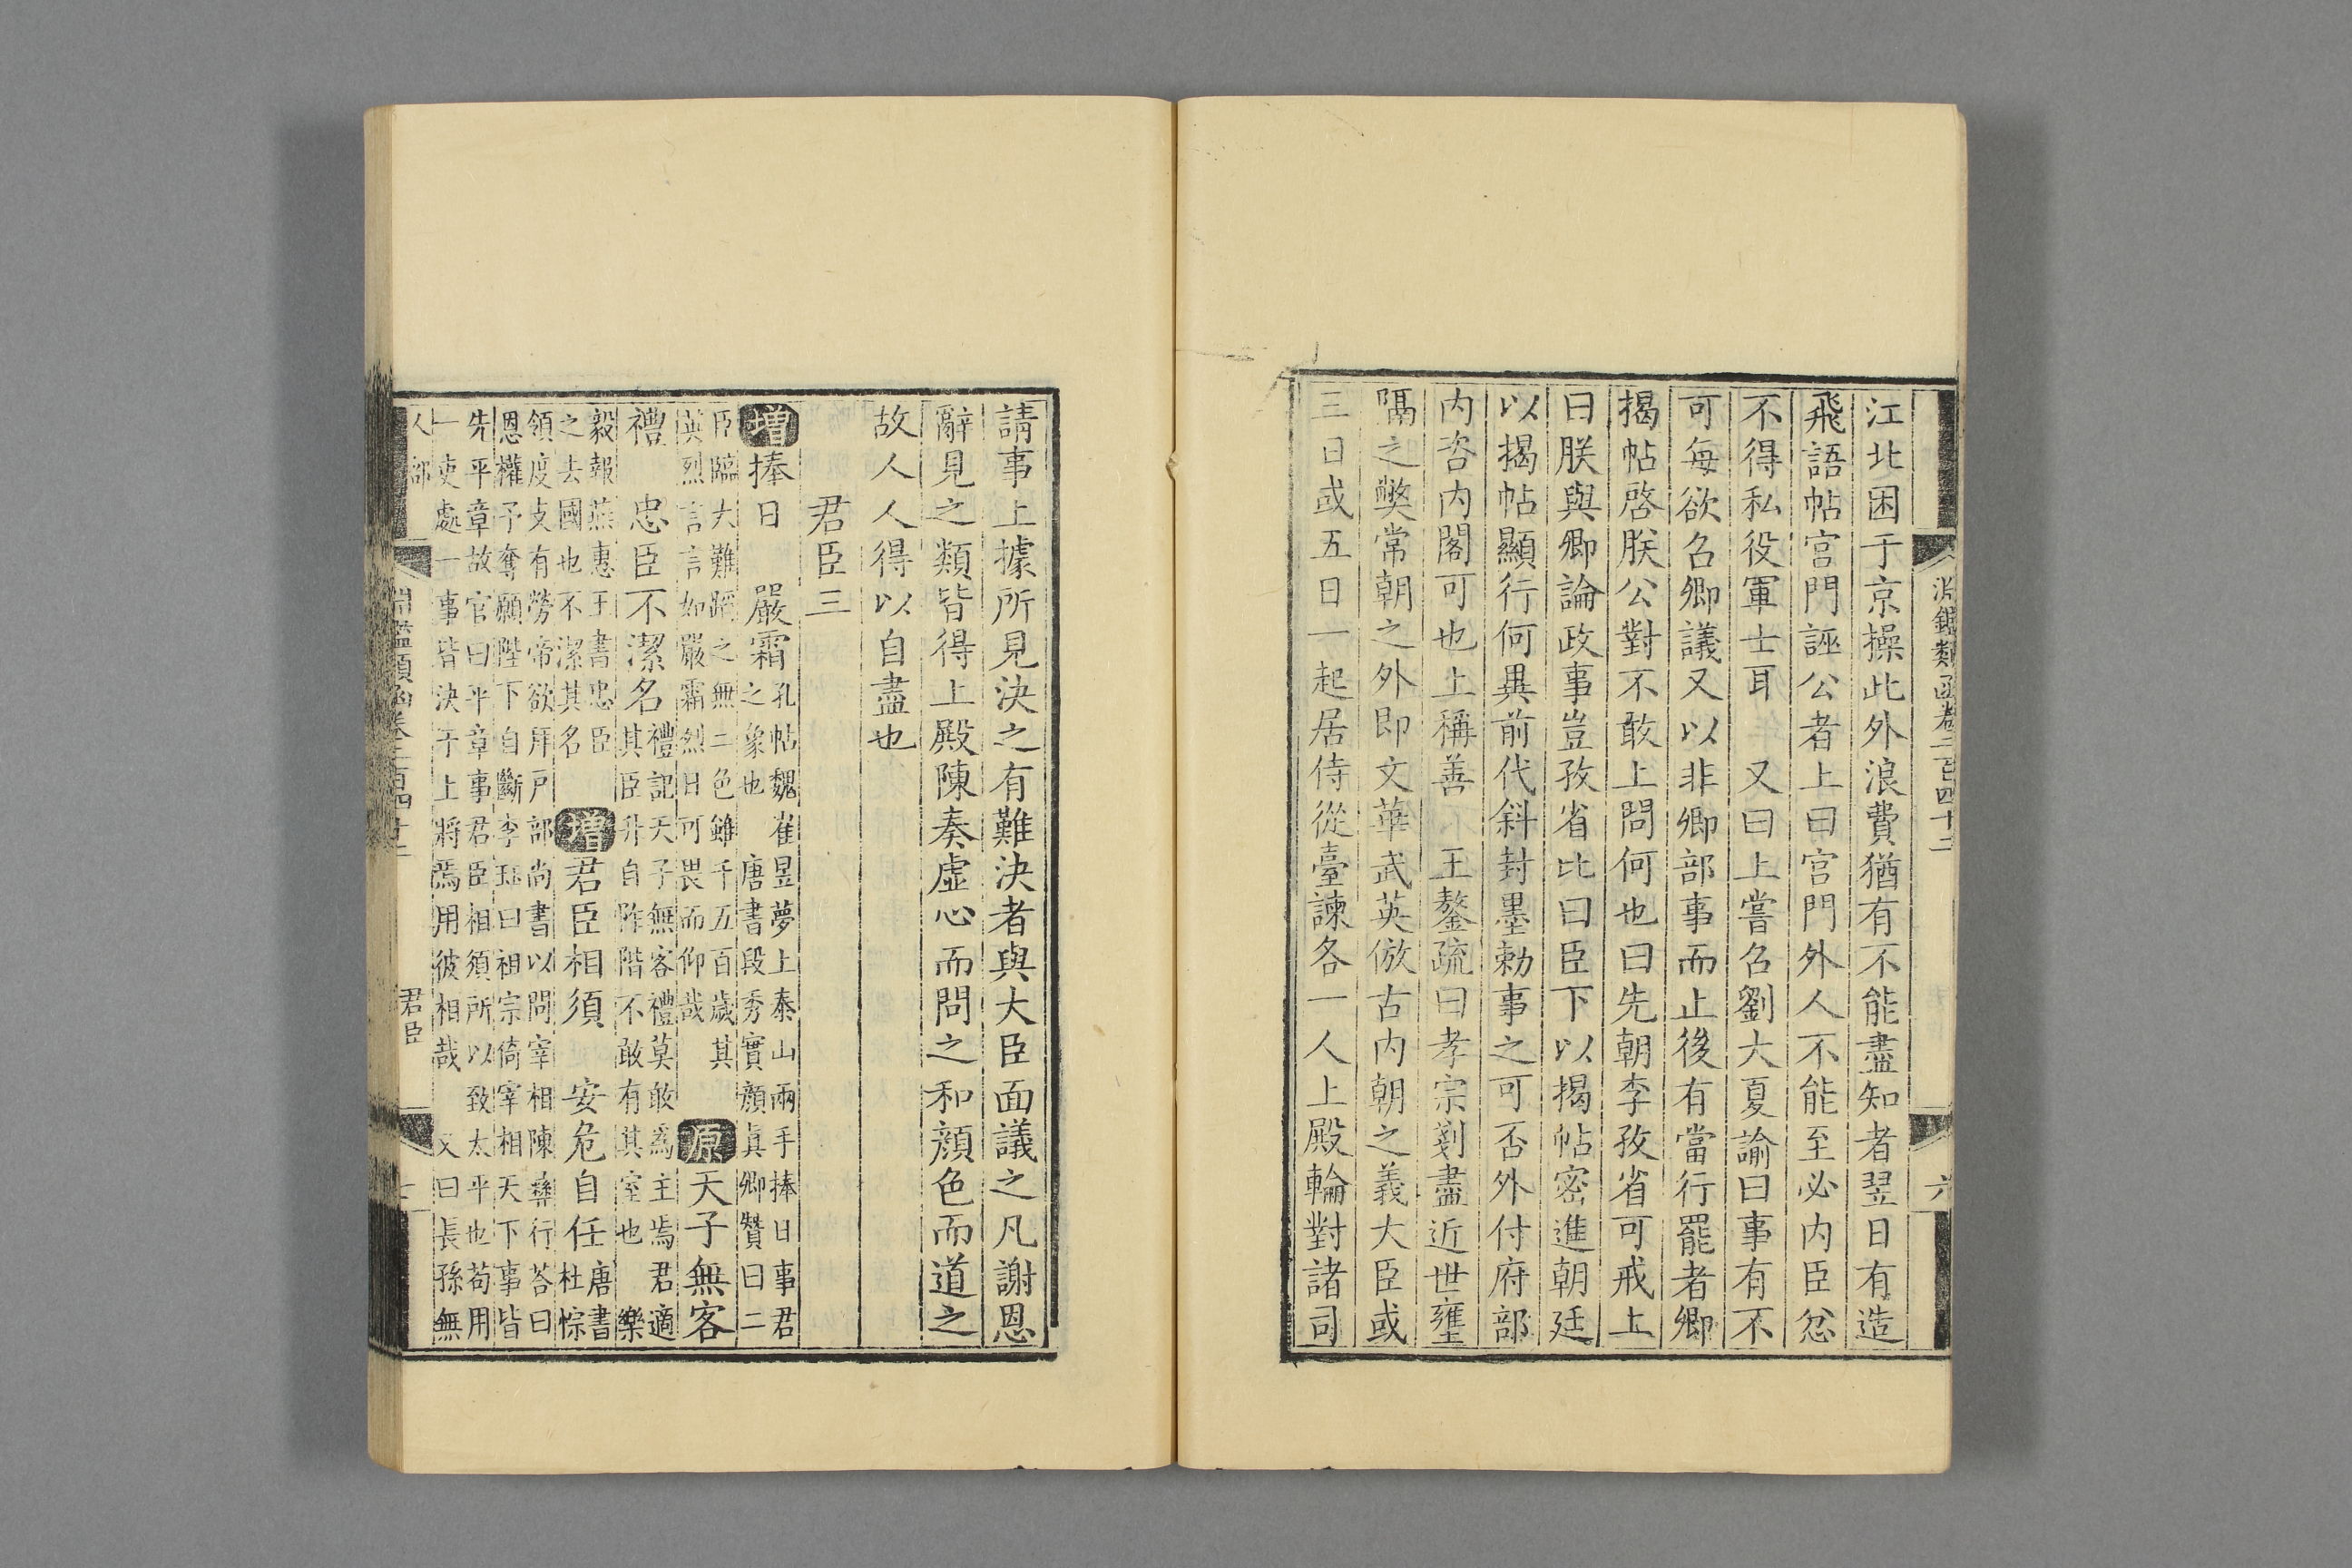 淵鑑類函卷二百四十二
六
江北困于京操此外浪費猶有不能盡知者翌日有造
飛語帖宮門誣公者上曰宮門外人不能至必內臣忿
不得私役軍士耳 又曰上嘗名劉大夏諭曰事有不
可每欲名卿議又以非卿部事而止後有當行罷者卿
揭帖啓朕公對不敢上問何也曰先朝李孜省可戒上
曰朕與卿論政事豈孜省比曰臣下以揭帖密進朝廷
以揭帖顯行何異前代斜封墨勅事之可否外付府部
內咨內閣可也上稱善 王鏊疏曰孝宗剗盡近世壅
隔之獘常朝之外即文華武英倣古內朝之義大臣或
三日或五日一起居侍從臺諫各一人上殿輪對諸司
請事上據所見決之有難決者與大臣面議之凡謝恩
辭見之類皆得上殿陳奏虛心而問之和顔色而道之
故人人得以自盡也
君臣三
增捧日 嚴霜 孔帖魏崔昱夢上泰山兩手捧日事君
之象也 唐書段秀實顔眞卿贊曰二
臣臨大難蹈之無二色雖千五百歲其
英烈言言如嚴霜烈日可畏而仰哉 原天子無客
禮 忠臣不潔名 禮記天子無客禮莫敢爲主焉君適
其臣升自阼階不敢有其室也 樂
毅報燕惠王書忠臣
之去國也不潔其名 增君臣相須 安危自任 唐書
杜悰
領度支有勞帝欲拜戸部尚書以問宰相陳彝行荅曰
恩權予奪願陛下自斷李珏曰祖宗倚宰相天下事皆
先平章故官曰平章事君臣相須所以致太平也苟用
一吏處一事皆決于上將焉用彼相哉 又曰長孫無
人部
淵鑑類函卷二百四十二
君臣